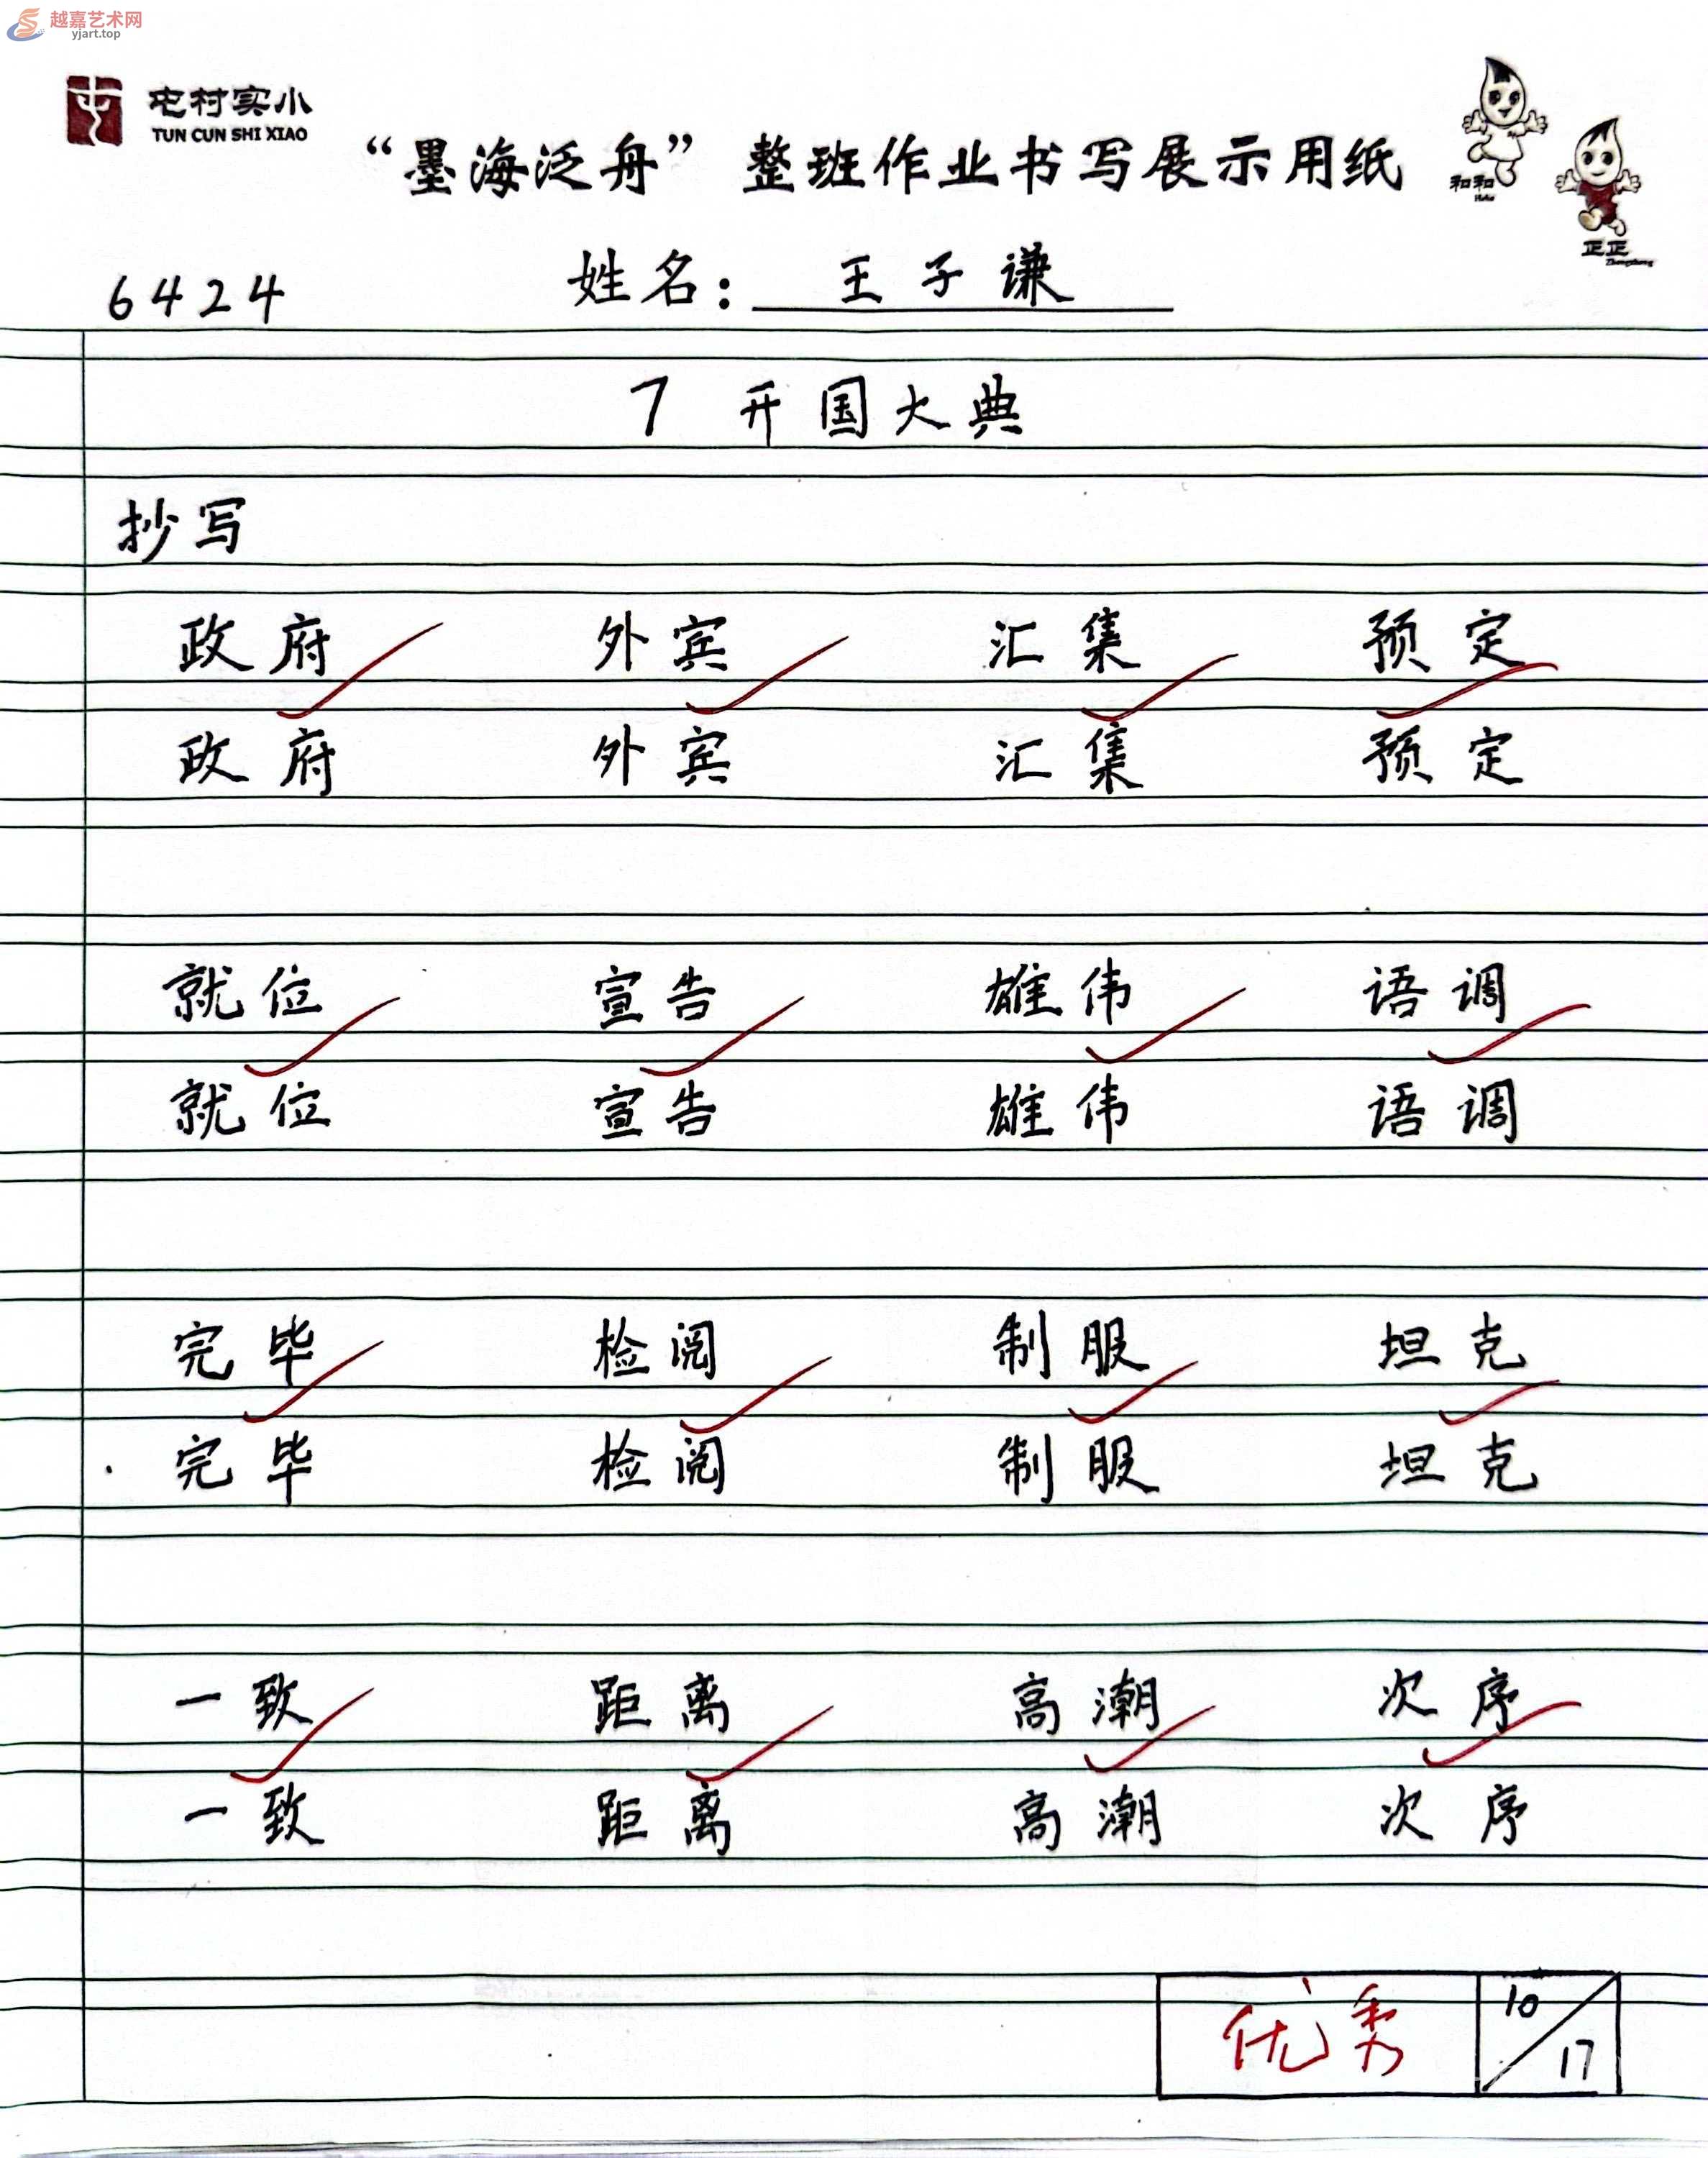 越嘉艺术网
yjart.top
屯村实小
TUN CUN SHI XIAO
“墨海泛舟”整班作业书写展示用纸
和和
Hehe
正正
Zhengzheng
6424 姓名：王子谦
7 开国大典
抄写
政府 外宾 汇集 预定
政府 外宾 汇集 预定
就位 宣告 雄伟 语调
就位 宣告 雄伟 语调
完毕 检阅 制服 坦克
完毕 检阅 制服 坦克
一致 距离 高潮 次序
一致 距离 高潮 次序
优秀 10/17